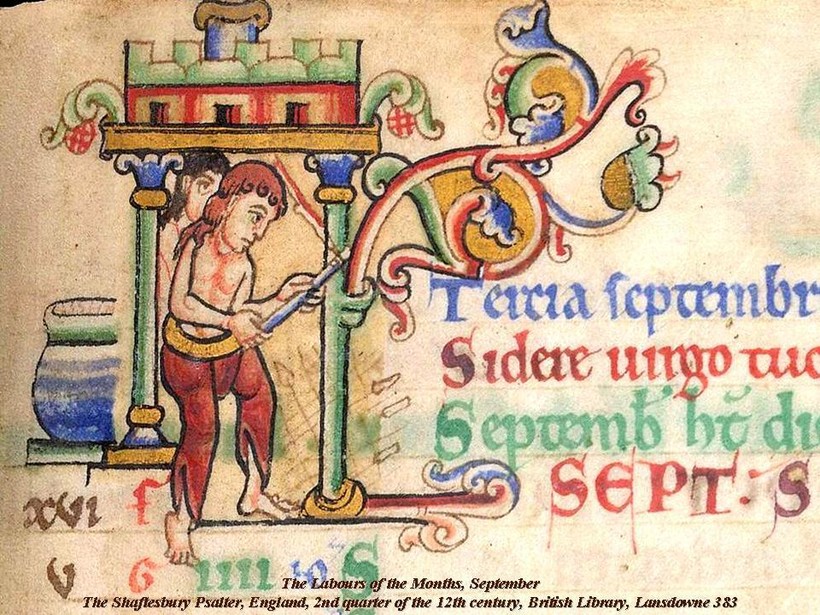 Tercia septembr
Sidere uirgo tuo
Septemb ht di
SEPT: S
xvi f
v G iiii io S
The Labours of the Months, September
The Shaftesbury Psalter, England, 2nd quarter of the 12th century, British Library, Lansdowne 383